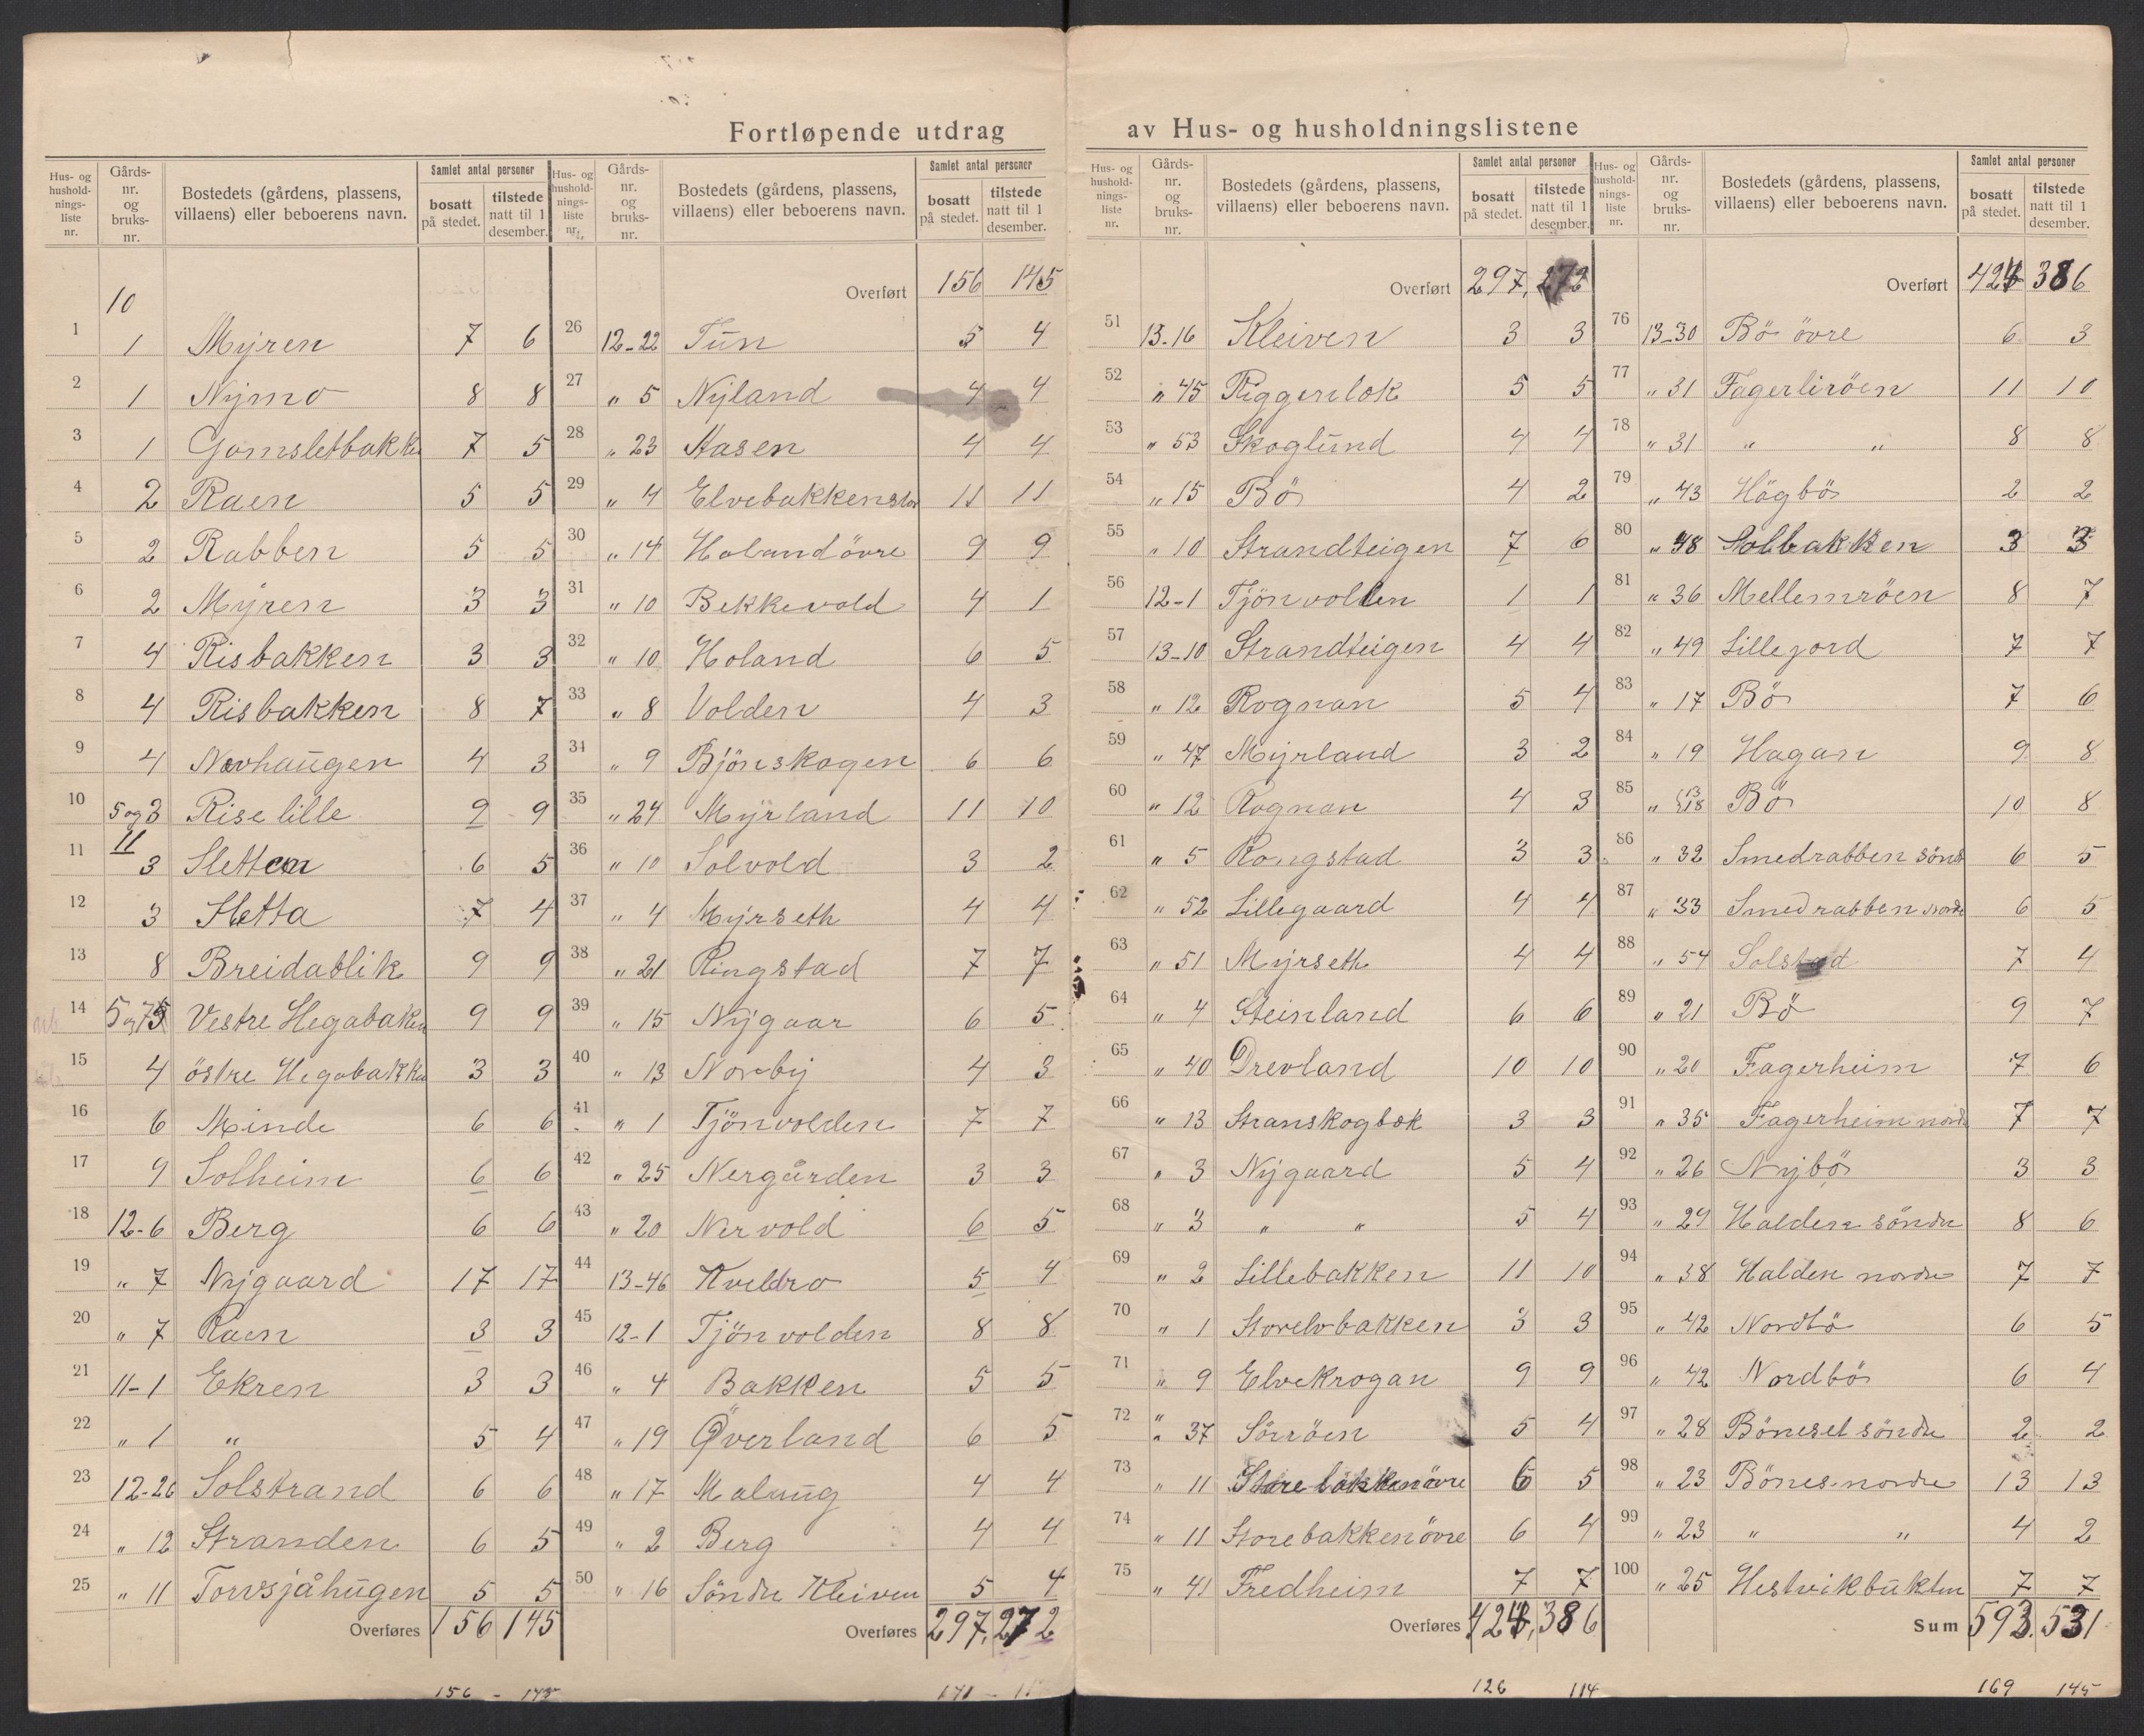 Fortløpende utdrag av Hus- og husholdningslistene
Hus- og hushold-nings-liste nr. | Gårds-nr. og bruks-nr. | Bostedets (gårdens, plassens, villaens) eller beboerens navn. | Samlet antal personer | bosatt på stedet. | tilstede natt til 1 desember.
10
1 | 1 | Myren | 7 | 6
2 | 1 | Nymo | 8 | 8
3 | 1 | Gamsletbakk | 7 | 5
4 | 2 | Raen | 5 | 5
5 | 2 | Rabben | 5 | 5
6 | 2 | Myren | 3 | 3
7 | 4 | Risbakken | 3 | 3
8 | 4 | Risbakken | 8 | 7
9 | 4 | Navhaugen | 4 | 3
10 | 5 og 3 | Rise lille | 9 | 9
11
11 | 3 | Sletten | 6 | 5
12 | 3 | Sletta | 7 | 4
13 | 8 | Breidablik | 9 | 9
14 | 5 og | Vestre Hegabaken | 9 | 9
15 | 4 | östre Hegabakken | 3 | 3
16 | 6 | Minde | 6 | 6
17 | 9 | Solheim | 6 | 6
18 | 12-6 | Berg | 6 | 6
19 | " 7 | Nygaard | 17 | 17
20 | " 7 | Raen | 3 | 3
21 | 11-1 | Ekren | 3 | 3
22 | " 1 | " | 5 | 4
23 | 12-26 | Solstrand | 6 | 6
24 | " 12 | Stranden | 6 | 5
25 | " 11 | Torvsjåhugen | 5 | 5
Overføres 156 145
156 - 145
Hus- og hushold-nings-liste nr. | Gårds-nr. og bruks-nr. | Bostedets (gårdens, plassens, villaens) eller beboerens navn. | Samlet antal personer | bosatt på stedet. | tilstede natt til 1 desember.
Overført 156 145
26 | 12-22 | Tun | 5 | 4
27 | " 5 | Nyland | 4 | 4
28 | " 23 | Aasen | 4 | 4
29 | " 4 | Elvebakken stor | 11 | 11
30 | " 14 | Holand övre | 9 | 9
31 | " 10 | Bekkevold | 4 | 1
32 | " 10 | Holand | 6 | 5
33 | " 8 | Volden | 4 | 3
34 | " 9 | Bjönskogen | 6 | 6
35 | " 24 | Myrland | 11 | 10
36 | " 10 | Solvold | 3 | 2
37 | " 4 | Myrseth | 4 | 4
38 | " 21 | Ringstad | 7 | 7
39 | " 15 | Nygaar | 6 | 5
40 | " 13 | Nordby | 4 | 3
41 | " 1 | Tjönvolden | 7 | 7
42 | " 25 | Nergården | 3 | 3
43 | " 20 | Nervold | 6 | 5
44 | 13-46 | Kveldro | 5 | 4
45 | 12-1 | Tjönvolden | 8 | 8
46 | " 4 | Bakken | 5 | 5
47 | " 19 | Överland | 6 | 5
48 | " 17 | Malung | 4 | 4
49 | " 2 | Berg | 4 | 4
50 | " 16 | Söndre Kleiven | 5 | 4
Overføres 297, 272
Hus- og hushold-nings-liste nr. | Gårds-nr. og bruks-nr. | Bostedets (gårdens, plassens, villaens) eller beboerens navn. | Samlet antal personer | bosatt på stedet. | tilstede natt til 1 desember.
Overført 297, 272
51 | 13-16 | Kleiven | 3 | 3
52 | " 45 | Riggerlok | 5 | 5
53 | " 53 | Skoglund | 4 | 4
54 | " 15 | Bö | 4 | 2
55 | " 10 | Strandteigen | 7 | 6
56 | 12-1 | Tjönvollen | 1 | 1
57 | 13-10 | Strandteigen | 4 | 4
58 | " 12 | Rognan | 5 | 4
59 | " 47 | Myrland | 3 | 2
60 | " 12 | Rognan | 4 | 3
61 | " 5 | Rongstad | 3 | 3
62 | " 52 | Lillegaard | 4 | 4
63 | " 51 | Myrseth | 4 | 4
64 | " 4 | Steinland | 6 | 6
65 | " 40 | Drevland | 10 | 10
66 | " 13 | Stranskogbok | 3 | 3
67 | " 3 | Nygaard | 5 | 4
68 | " 3 | " " | 5 | 4
69 | " 2 | Lillebakken | 11 | 10
70 | " 1 | Storelvbakken | 3 | 3
71 | " 9 | Elvekrogan | 9 | 9
72 | " 37 | Sörröen | 5 | 4
73 | " 11 | Storebakken övre | 6 | 5
74 | " 11 | Storebakken övre | 6 | 4
75 | " 41 | Fredheim | 7 | 7
Overføres 424, 386
126 114
Hus- og hushold-nings-liste nr. | Gårds-nr. og bruks-nr. | Bostedets (gårdens, plassens, villaens) eller beboerens navn. | Samlet antal personer | bosatt på stedet. | tilstede natt til 1 desember.
Overført 424 386
76 | 13-30 | Bö övre | 6 | 3
77 | " 31 | Fagerliröen | 11 | 10
78 | " 31 | " " | 8 | 8
79 | " 43 | Högbö | 2 | 2
80 | " 48 | Solbakken | 3 | 3
81 | " 36 | Mellemröen | 8 | 7
82 | " 49 | Lillejord | 7 | 7
83 | " 17 | Bö | 7 | 6
84 | " 19 | Hagan | 9 | 8
85 | " 13 18 | Bö | 10 | 8
86 | " 32 | Smedrabben sönd | 6 | 5
87 | " 33 | Smedrabben nordr | 6 | 5
88 | " 54 | Solstad | 7 | 4
89 | " 21 | Bö | 9 | 7
90 | " 20 | Fagerheim | 7 | 6
91 | " 35 | Fagerheim nord | 7 | 7
92 | " 26 | Nybö | 3 | 3
93 | " 29 | Halden söndre | 8 | 6
94 | " 38 | Halden nordre | 7 | 7
95 | " 42 | Nordbö | 6 | 5
96 | " 42 | Nordbö | 6 | 4
97 | " 28 | Böneset söndre | 2 | 2
98 | " 23 | Bönes nordre | 13 | 13
99 | " 23 | " " | 4 | 2
100 | " 25 | Hestvikbukten | 7 | 7
Sum 593. 531
169 145